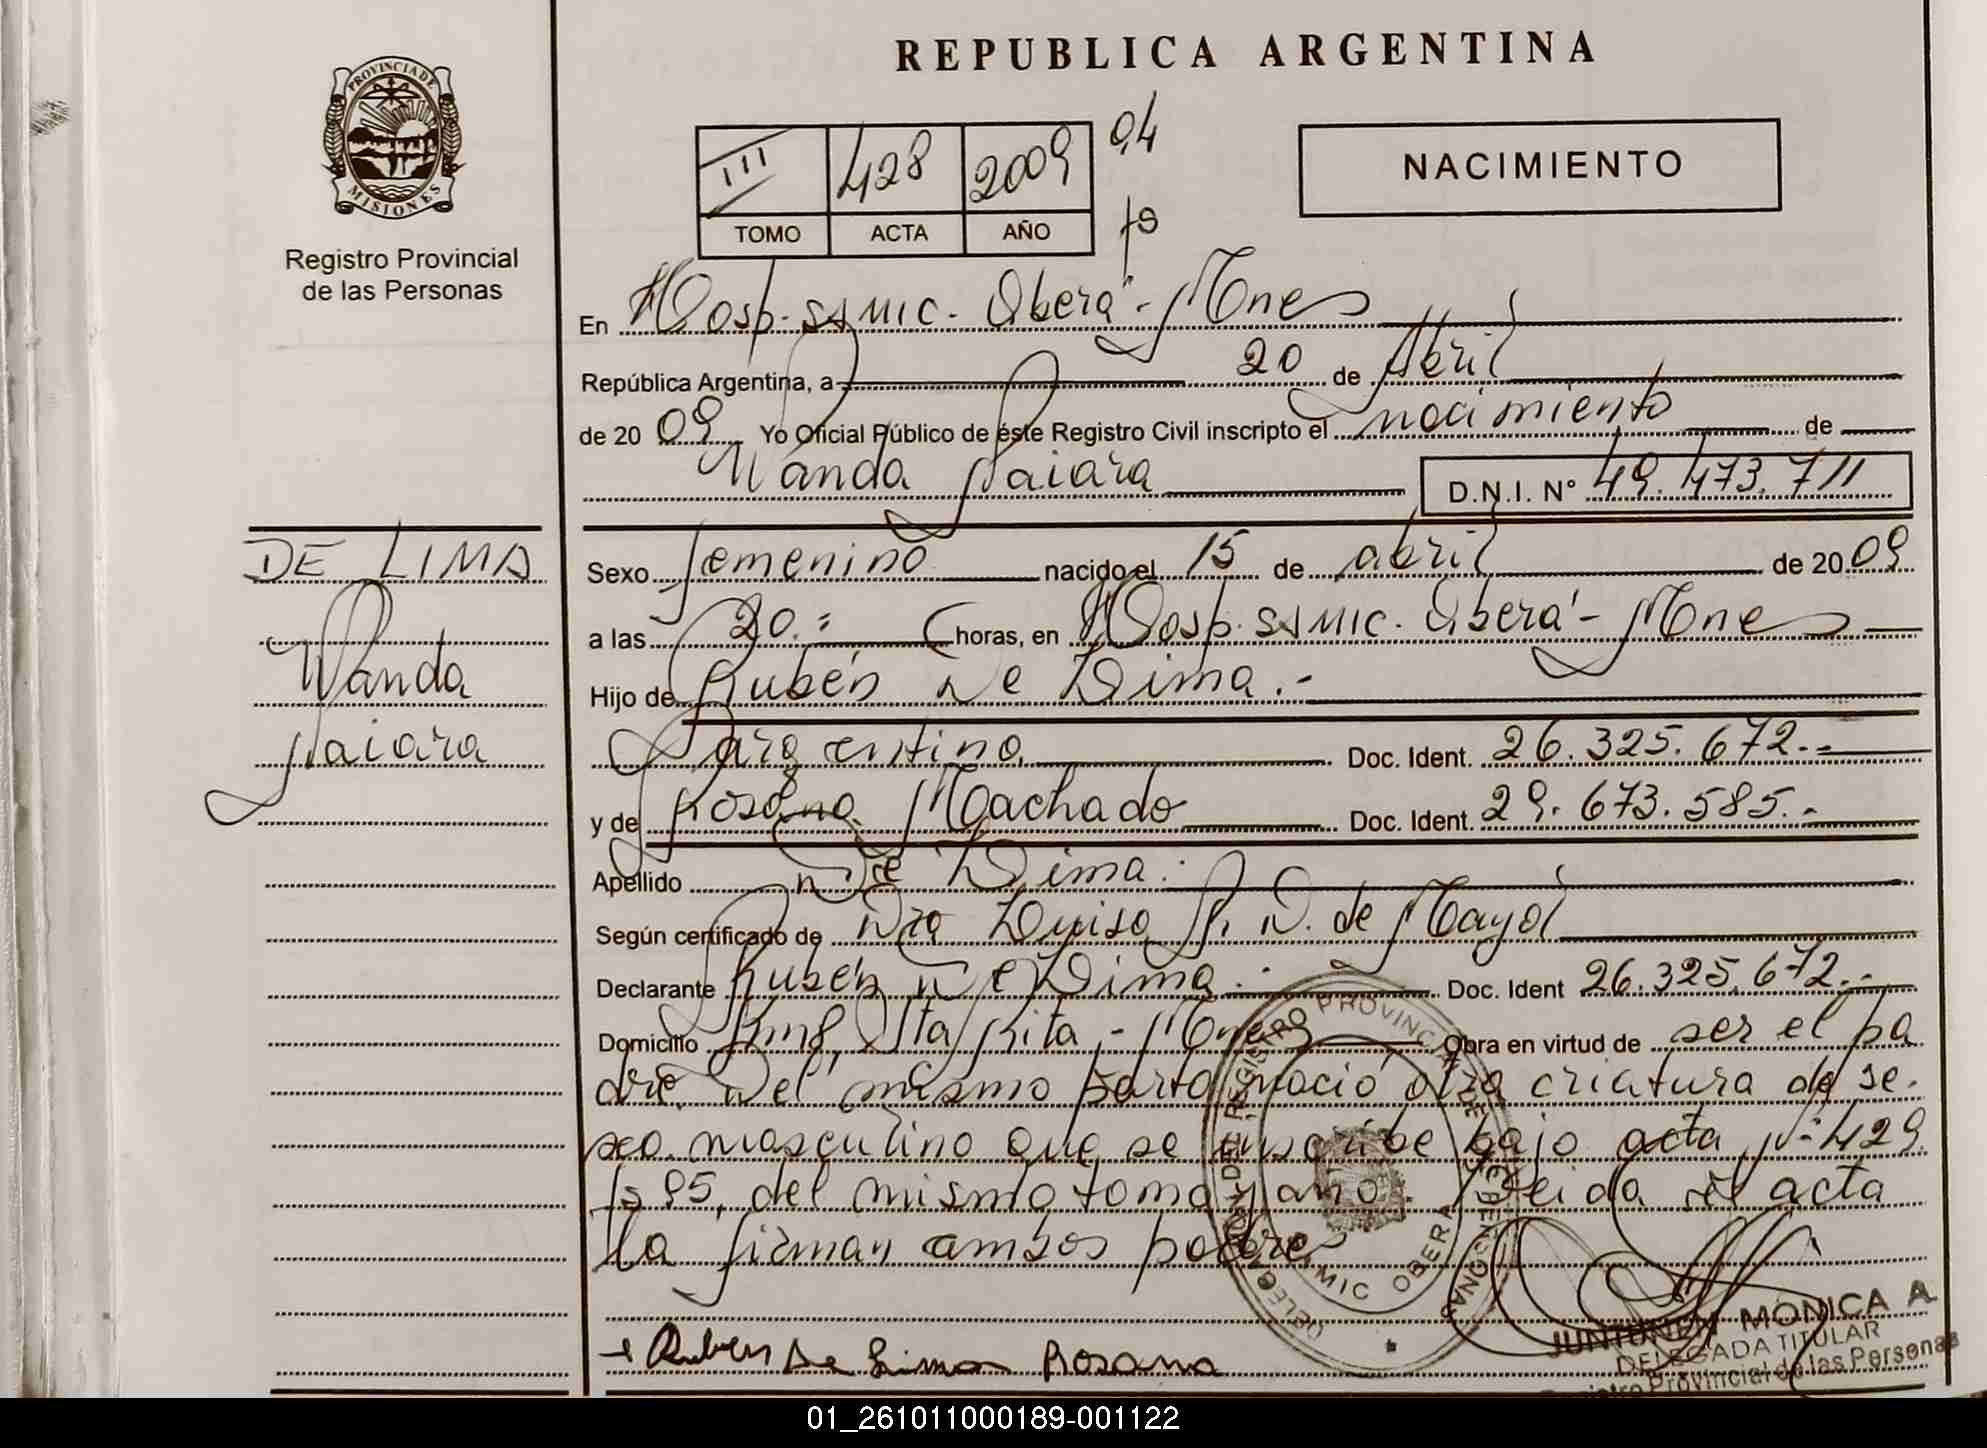 REPUBLICA ARGENTINA
PROVINCIA DE MISIONES
Registro Provincial
de las Personas
III 428 2009 94
TOMO ACTA AÑO fs
NACIMIENTO
En Hosp. SAMIC. Oberá - Mnes
República Argentina, a 20 de Abril
de 20 09 Yo Oficial Público de éste Registro Civil inscripto el nacimiento de
Wanda Naiara D.N.I. N° 49.473.711
DE LIMA
Wanda
Naiara
Sexo femenino nacido el 15 de abril de 20 09
a las 20.= horas, en Hosp. SAMIC. Oberá - Mnes
Hijo de Rubén De Lima.-
argentino Doc. Ident. 26.325.672.-
y de Rosana Machado Doc. Ident. 29.673.585.-
Apellido De Lima.
Según certificado de Dra Luisa N. de Mayol
Declarante Rubén De Lima. Doc. Ident 26.325.672.-
Domicilio Km 8, Sta Rita - Mnes Obra en virtud de ser el pa
dre. Del mismo parto nació otra criatura de se-
xo masculino que se inscribe bajo acta N= 429
fs 95, del mismo tomo y año. Leida el acta
la firman ambos padres
Ruben De Lima Rosana
DELEGACION DEL REGISTRO PROVINCIAL DE LAS PERSONAS
SAMIC OBERA
JUNTUNEN MONICA A.
DELEGADA TITULAR
Registro Provincial de las Personas
01_261011000189-001122